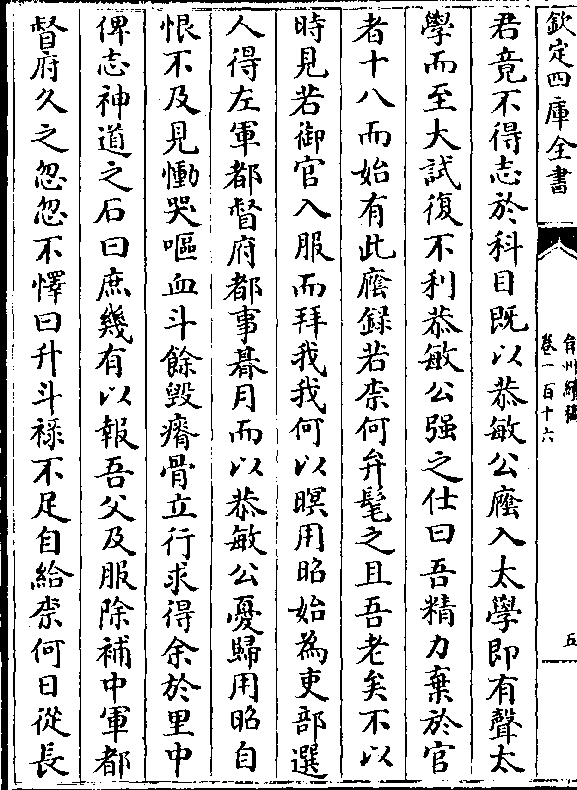 欽定四庫全書
弇州續稿
卷一百十六
五
君竟不得志於科目既以恭敏公廕入太學即有聲太
學而至大試復不利恭敏公强之仕曰吾精力棄於官
者十八而始有此廕録若柰何弁髦之且吾老矣不以
時見若御官入服而拜我我何以瞑用昭始為吏部選
人得左軍都督府都事朞月而以恭敏公憂歸用昭自
恨不及見慟哭嘔血斗餘毁瘠骨立行求得余於里中
俾志神道之石曰庶幾有以報吾父及服除補中軍都
督府久之忽忽不懌曰升斗禄不足自給柰何日從長